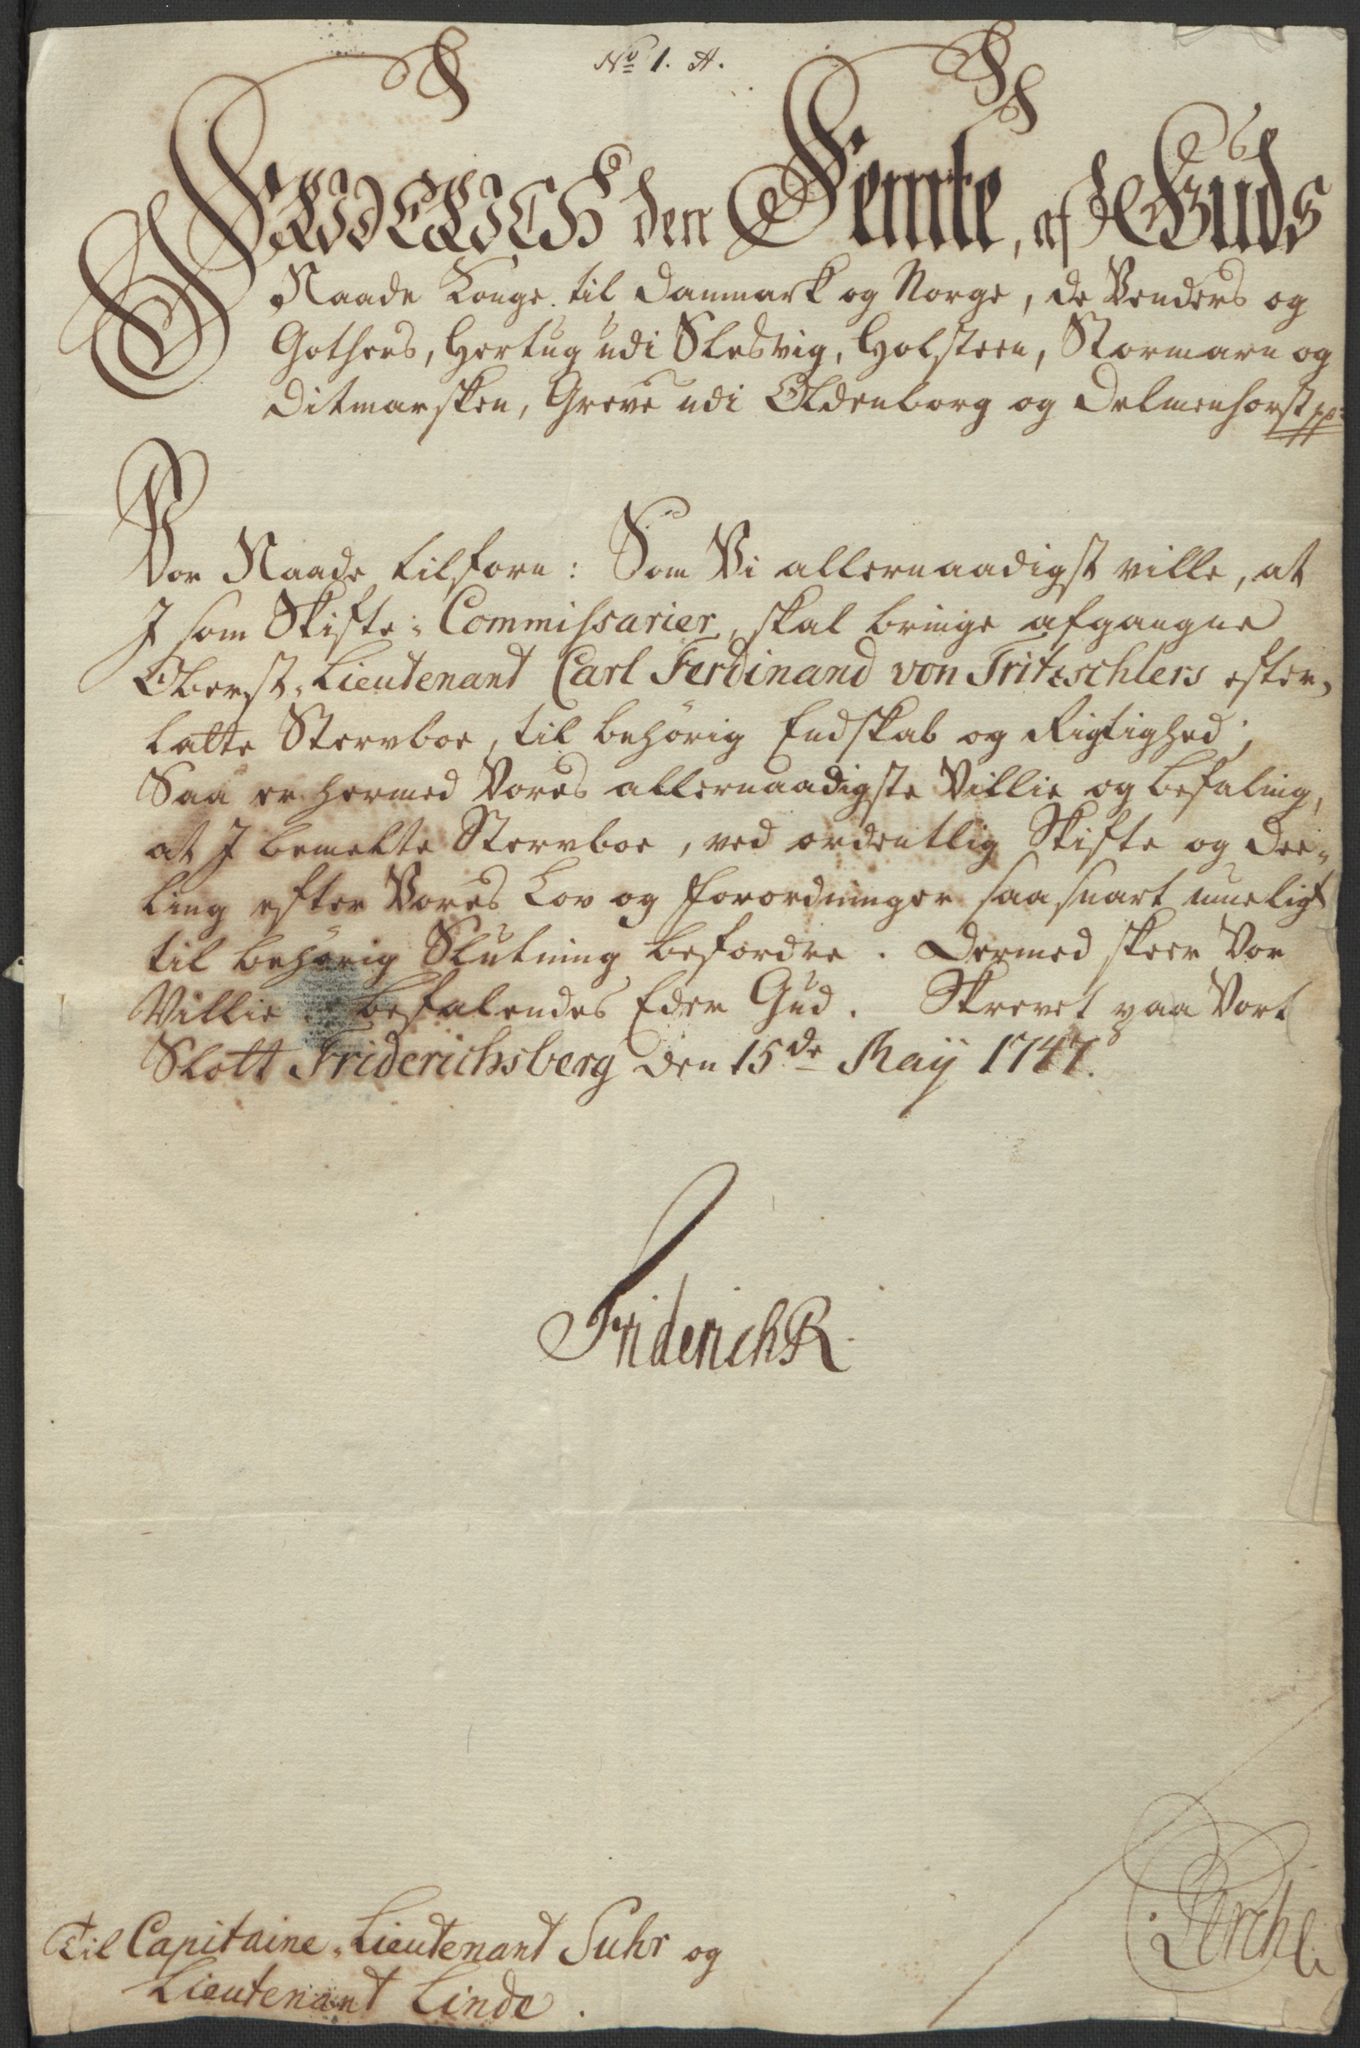 No 1. A.
FRIDERICH den Femte, af Guds
Naade Konge til Danmark og Norge, de Venders og
Gothers, Hertug udi Slesvig, Holsteen, Stormarn og
Ditmarsken, Greve udi Oldenborg og Delmenhorst pp:
Vor Naade tilforn: Som Vi allernaadigst ville, at
I som Skifte-Commissarier, skal bringe afgangne
Oberst-Lieutenant Carl Ferdinand von Tritzschlers efter-
latte Stervboe, til behörig Endskab og Rigtighed;
Saa er hermed Vores allernaadigste Villie og befaling,
at I bemelte Stervboe, ved ordentlig Skifte og Dee-
ling efter Vores Lov og Forordninger saa snart mueligt
til behörig Slutning befordre. Dermed skeer Vor
Villie. Befalendes Eder Gud. Skrevet paa Vort
Slott Friderichsberg den 15de Maÿ 1747.
Friderich R
Lerche
Til Capitaine-Lieutenant Suhr og
Lieutenant Linde.